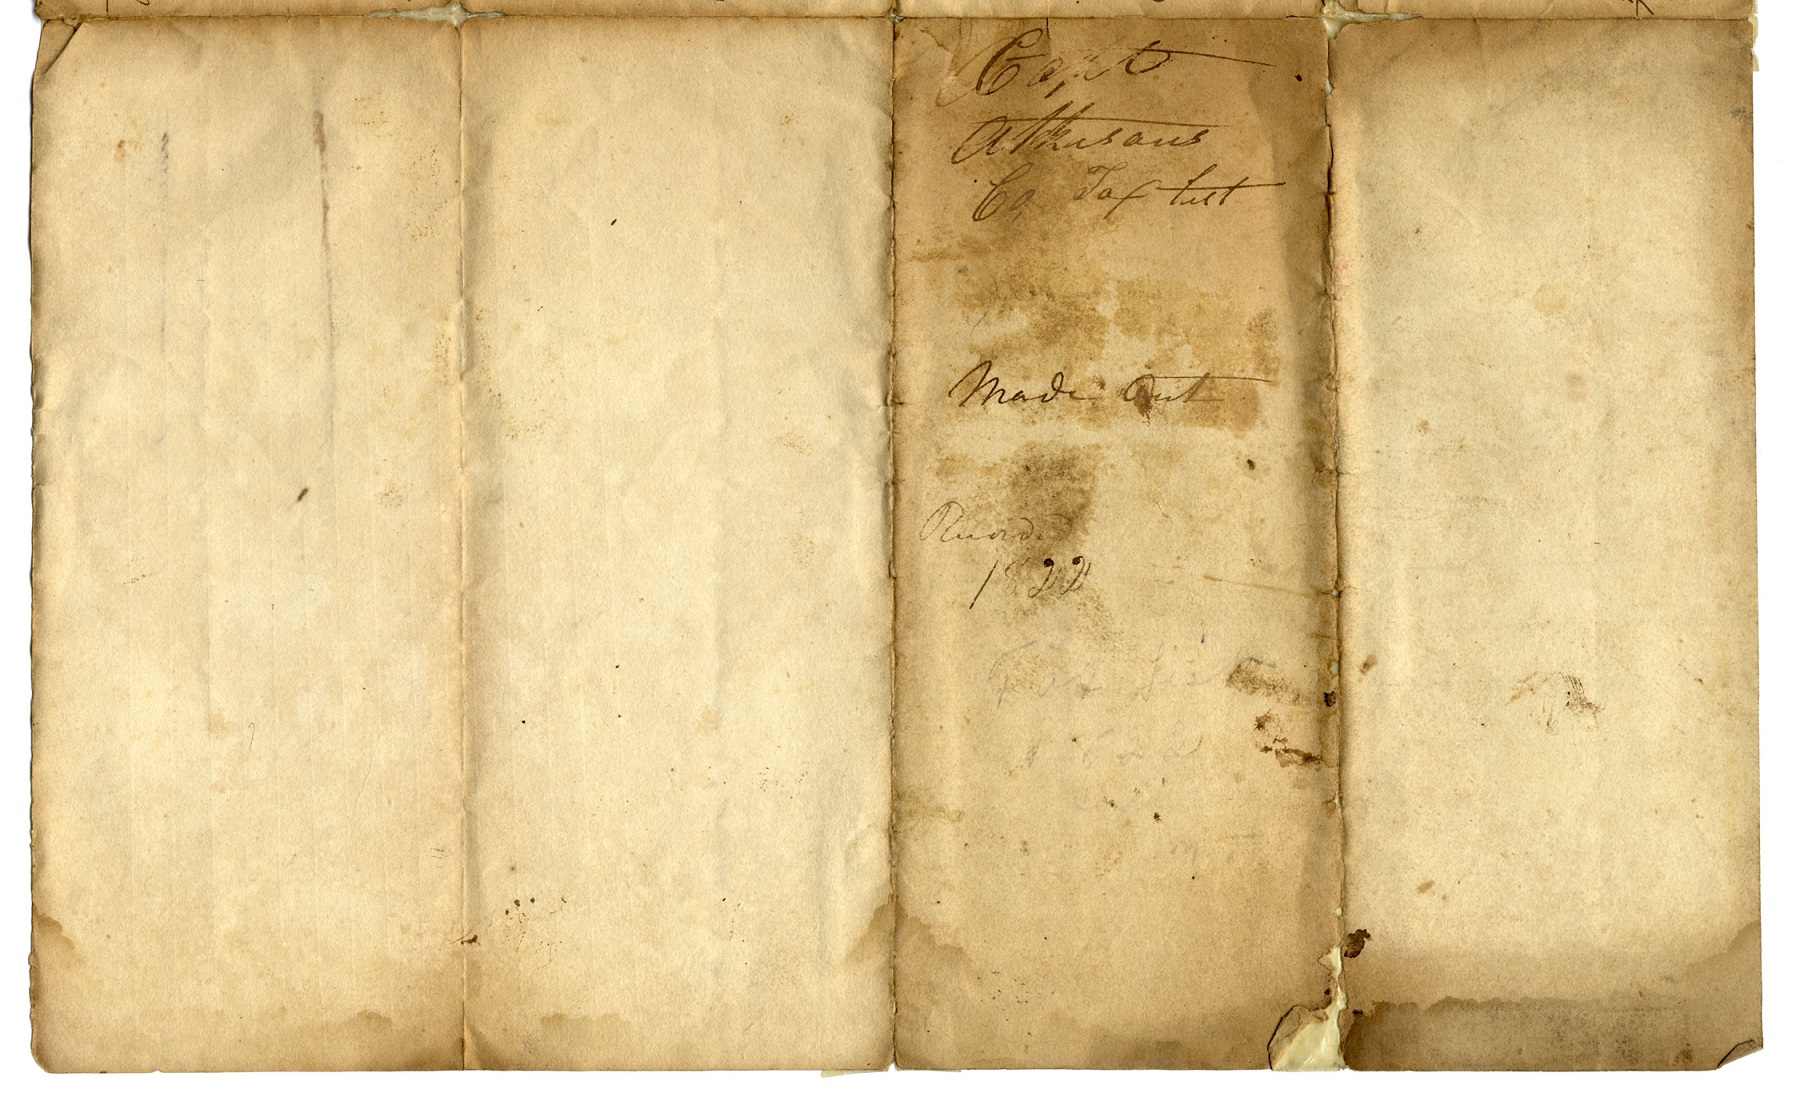 Capt
Atkisons
Co, Tax list
Made Out
Record
1822
Tax List
1822